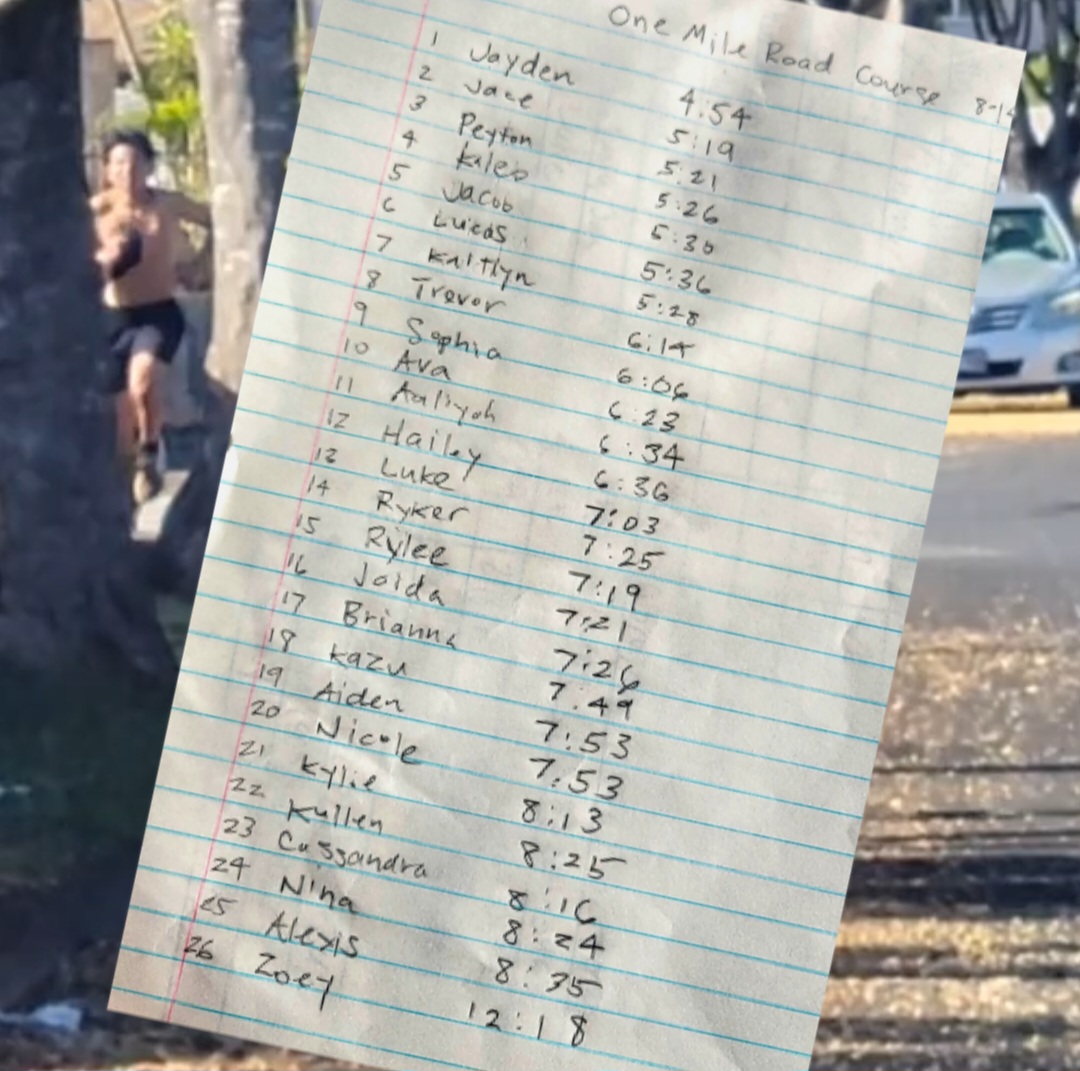 One Mile Road Course 8-1
1 Jayden 4:54
2 Jace 5:19
3 Peyton 5:21
4 Kaleo 5:26
5 Jacob 5:30
6 Lucas 5:36
7 Kaitlyn 5:28
8 Trevor 6:14
9 Sophia 6:06
10 Ava 6:23
11 Aaliyah 6:34
12 Hailey 6:36
13 Luke 7:03
14 Ryker 7:25
15 Rylee 7:19
16 Jaida 7:21
17 Brianna 7:26
18 Kazu 7:49
19 Aiden 7:53
20 Nicole 7:53
21 Kylie 8:13
22 Kullen 8:25
23 Cassandra 8:16
24 Nina 8:24
25 Alexis 8:35
26 Zoey 12:18